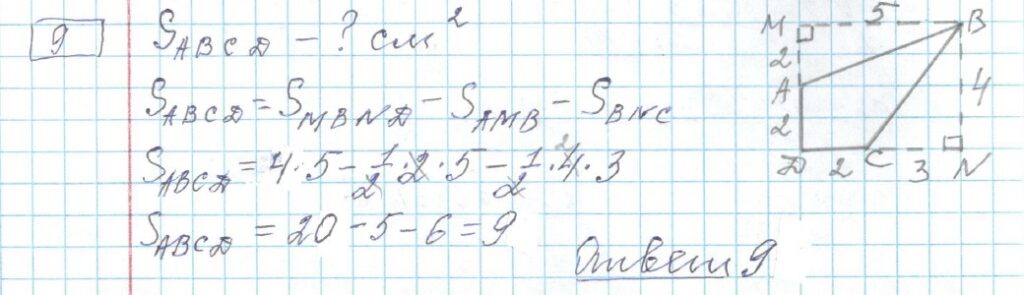 9
S_ABCD - ? см²
S_ABCD = S_MBND - S_AMB - S_BNC
S_ABCD = 4·5 - 1/2·2·5 - 1/2·4·3
2
S_ABCD = 20 - 5 - 6 = 9
Ответ 9
M 5 B
2
A 4
2
D 2 C 3 N